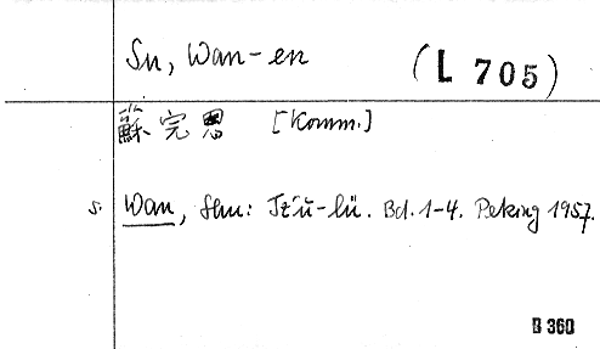 Su, Wan-en (L 705)
蘇完恩 [Komm.]
s. Wan, Shu: Tz'ŭ-lü. Bd. 1-4. Peking 1957.
B 360